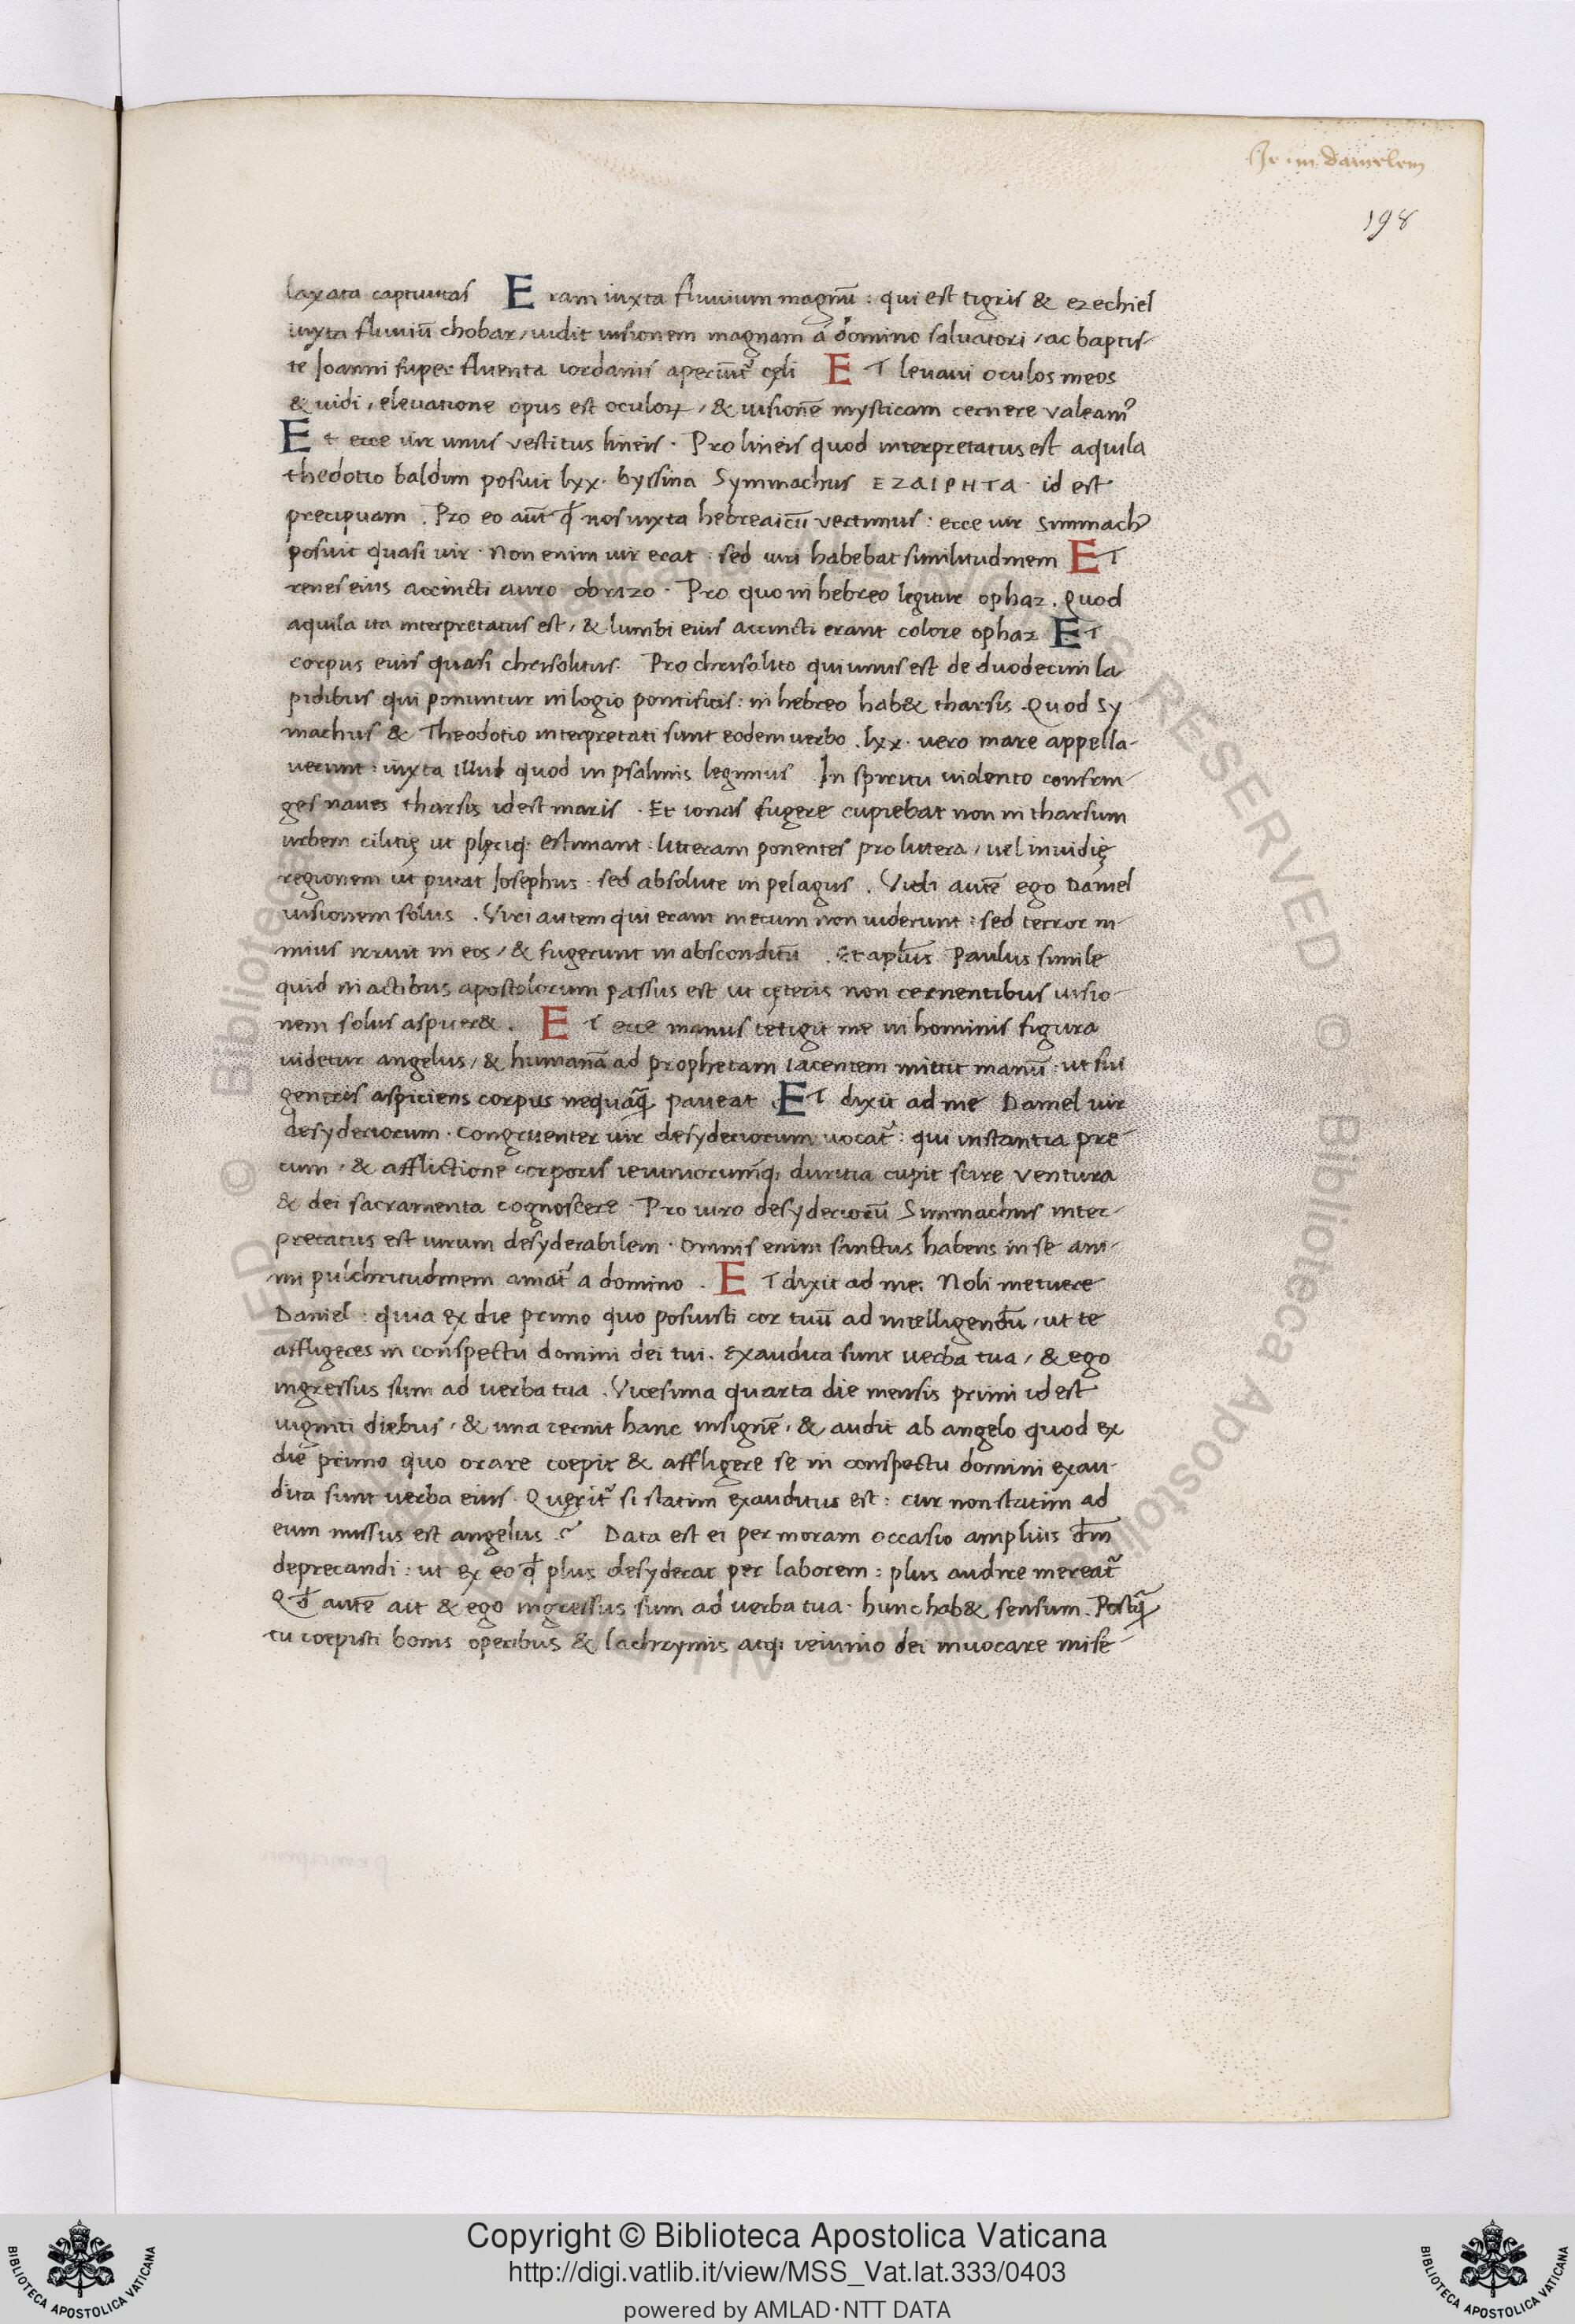 Je in danielem
198
laxata captiuitas Eram iuxta fluuium magnū : qui est tigris & ezechiel
iuxta fluuiū chobar / uidit uisionem magnam a domino saluatori / ac baptis-
te Joanni super fluenta iordanis aperiūt᷑ cęli ET leuaui oculos meos
& uidi , eleuatione opus est oculoꝝ / & uisionē mysticam cernere valeamꝰ
Et ecce uir unus vestitus lineis · Pro lineis quod interpretatus est aquila
thedotio baldim posuit lxx · byssina Symmachus EZAIPHTA · id est
precipuam . Pro eo aūt qđ nos iuxta hebreaicū vertimus : ecce uir simmachꝰ
posuit quasi uir · Non enim uir erat : sed uiri habebat similitudinem ET
renes eius accincti auro obrizo · Pro quo in hebreo legitur ophaz . Quod
aquila ita interpretatus est , & lumbi eius accincti erant colore ophaz ET
corpus euis quasi chrisolitus . Pro chrisolito qui unus est de duodecim la
pidibus qui ponuntur in logio pontificis : in hebreo hab& tharsis . Quod Sy
machus & Theodotio interpretati sunt eodem verbo . lxx · uero mare appella-
uerunt : iuxta illud quod in psalmis legimus In spiritu uidento confrin-
ges naues tharsis id est maris · Et ionas fugere cupiebat non in tharsum
urbem cilitię ut plęriq; estimant : litteram ponentes pro littera / uel inuidię
regionem ut putat Josephus : sed absolute in pelagus . Vidi autē ego Daniel
uisionem solus . Viri autem qui erant mecum non uiderunt : sed terror ni-
mius irruit in eos / & fugerunt in absconditū . Et apl̄us Paulus simile
quid in actibus apostolorum passus est ut cęteris non cernentibus uisio-
nem solus aspicer& . ET ecce manus tetigit me in hominis figura
uidetur angelus , & humanā ad prophetam iacentem mittit manū : ut sui
generis aspiciens corpus nequāq̄ paueat . ET dixit ad me Daniel uir
desyderiorum · congruenter uir desyderiorum uocat᷑ : qui instantia pre-
cum · & afflictione corporis ieiuniorumq; duritia cupit scire ventura
& dei sacramenta cognoscere · Pro uiro desyderiorū Simmachus inter-
pretatus est uirum desyderabilem · Omnis enim sanctus habens in se ani-
mi pulchritudinem amat᷑ a domino . ET dixit ad me. Noli metuere
Daniel : quia ex die primo quo posuisti cor tuū ad intelligendū , ut te
affligeres in conspectu domini dei tui . Exaudita sunt uerba tua , & ego
ingressus sum ad uerba tua . Vicesima quarta die mensis primi id est
uiginti diebus , & una cernit hanc insignē , & audit ab angelo quod ex
die primo quo orare coepit & affligere se in conspectu domini exau-
dita sunt uerba eius . Querit᷑ si statim exauditus est : cur non statim ad
eum missus est angelus ? Data est ei per moram occasio amplius dm̄
deprecandi : ut ex eo qđ plus desyderat per laborem : plus audire mereat᷑
Qđ autē ait & ego ingressus sum ad uerba tua · hunc hab& sensum . Postq̄
tu coepisti bonis operibus & lachrymis atq; ieiunio dei inuocare mise-
Copyright © Biblioteca Apostolica Vaticana
http://digi.vatlib.it/view/MSS_Vat.lat.333/0403
powered by AMLAD·NTT DATA
BIBLIOTECA APOSTOLICA VATICANA
BIBLIOTECA APOSTOLICA VATICANA